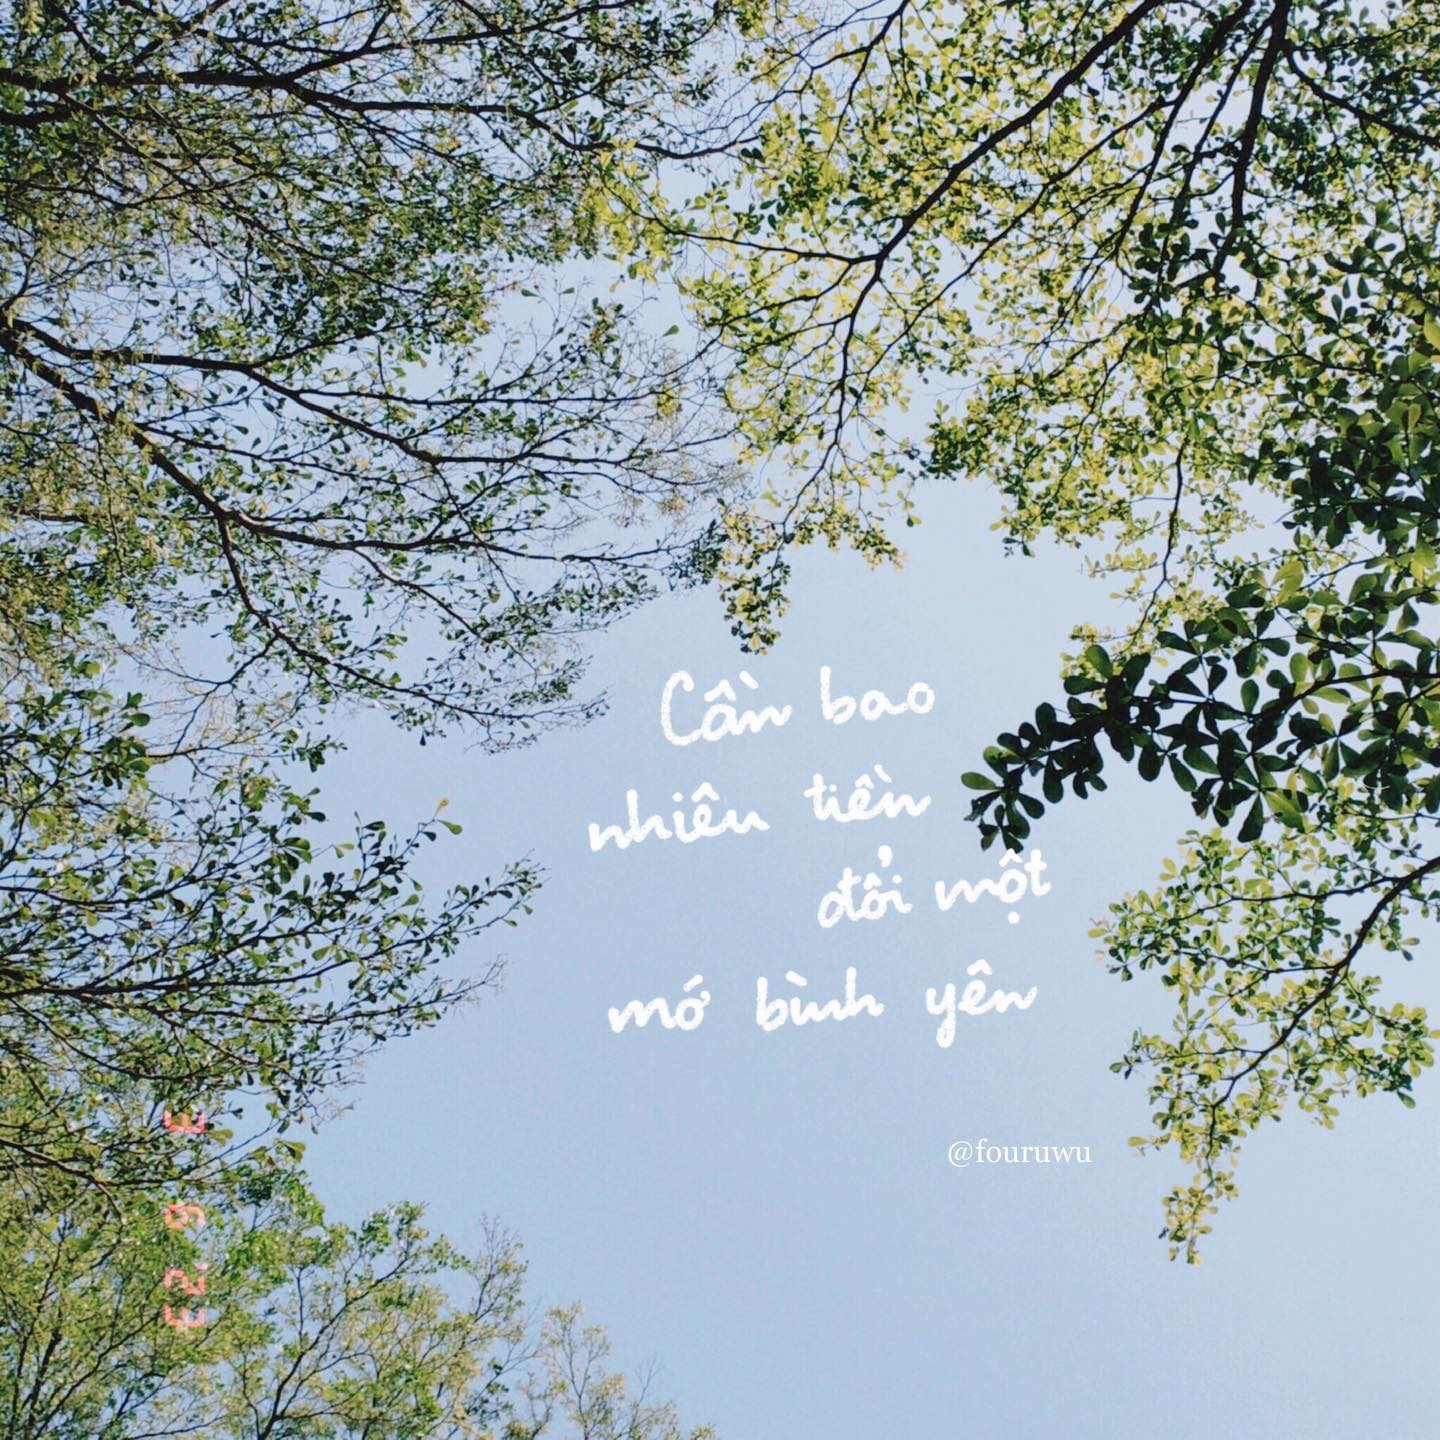 Cần bao
nhiêu tiền
đổi một
mớ bình yên
@fouruwu